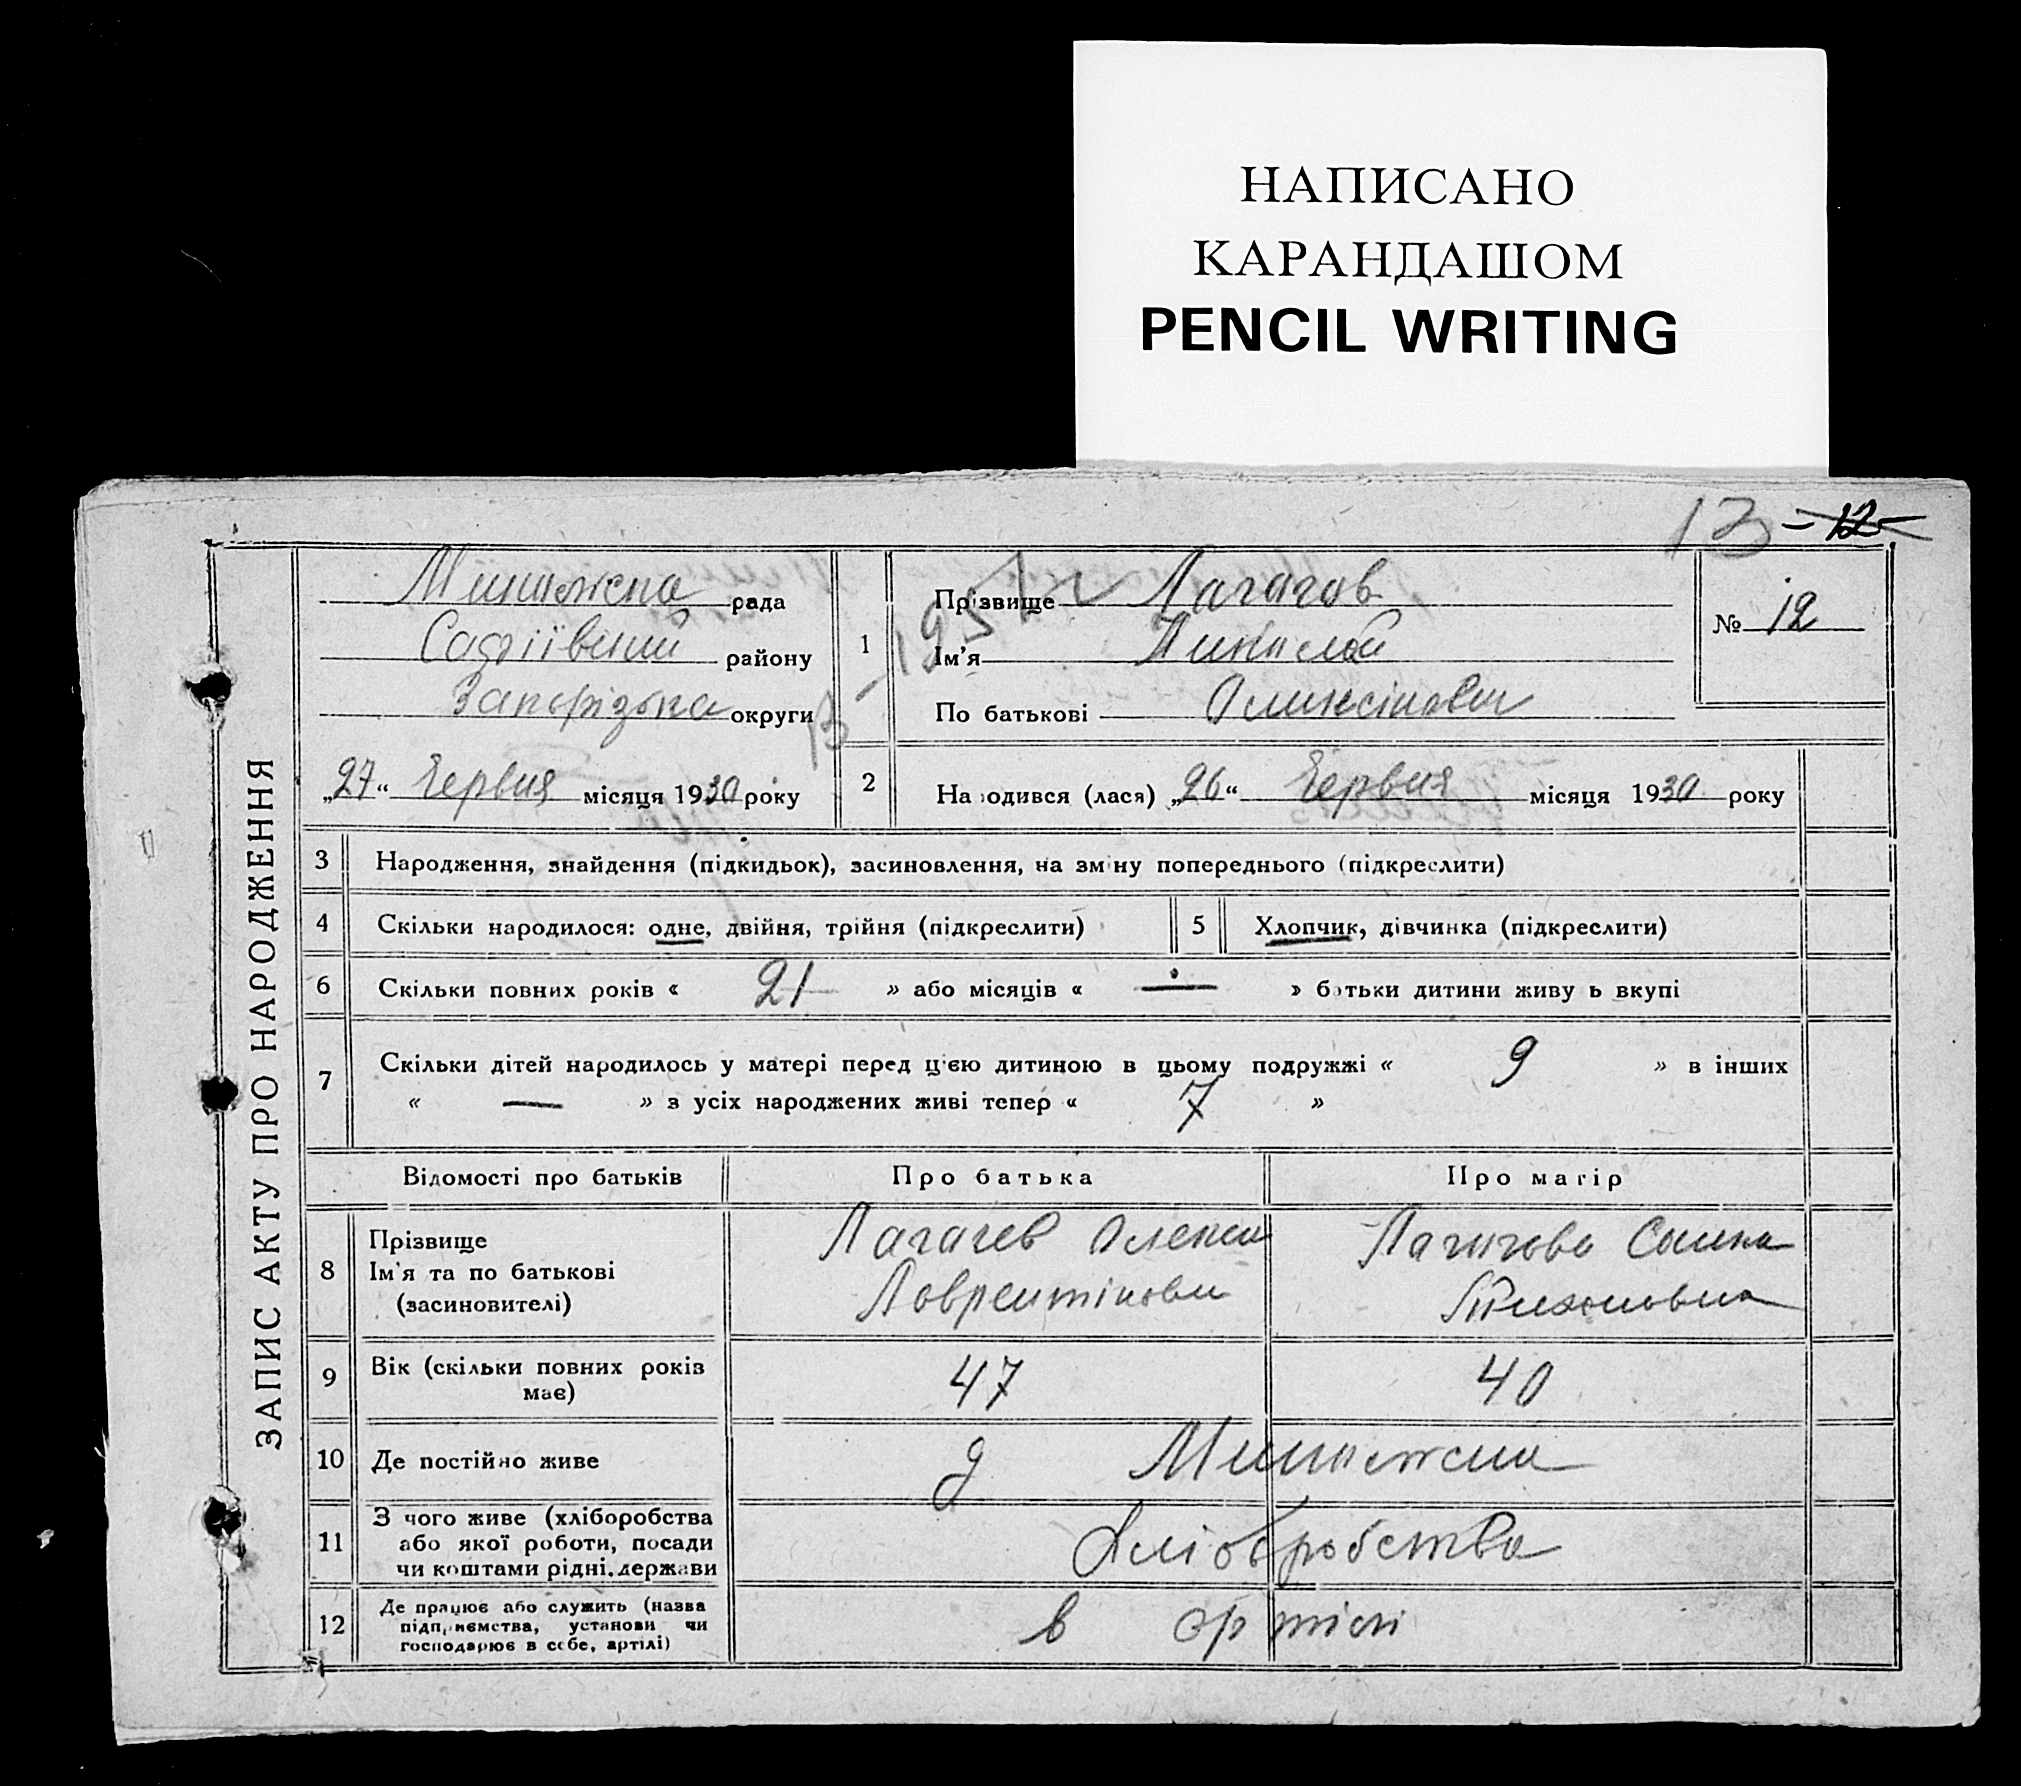 НАПИСАНО
КАРАНДАШОМ
PENCIL WRITING
13 - 12 -
ЗАПИС АКТУ ПРО НАРОДЖЕННЯ
рада
Софіївський району
Запорізька округи
„27“ Червня місяця 1930 року
1
Прізвище Лагачов
Ім'я Миколай
По батькові
№ 12
2
Народився (лася) „26“ Червня місяця 1930 року
3 Народження, знайдення (підкидьок), засиновлення, на зміну попереднього (підкреслити)
4 Скільки народилося: одне, двійня, трійня (підкреслити) 5 Хлопчик, дівчинка (підкреслити)
6 Скільки повних років « 21 » або місяців « — » батьки дитини живуть вкупі
7 Скільки дітей народилось у матері перед цією дитиною в цьому подружжі « 9 » в інших
« — » з усіх народжених живі тепер « 7 »
Відомості про батьків Про батька Про матір
8 Прізвище
Ім'я та по батькові
(засновителі)
Лагачев Олекса
Лаврентінови
Лагачова
Тихоновна
9 Вік (скільки повних років
має)
47 40
10 Де постійно живе
11 З чого живе (хліборобства
або якої роботи, посади
чи коштами рідні, держави
Хліборобства
12 Де працює або служить (назва
підприємства, установи чи
господарює в себе, артілі)
в артілі